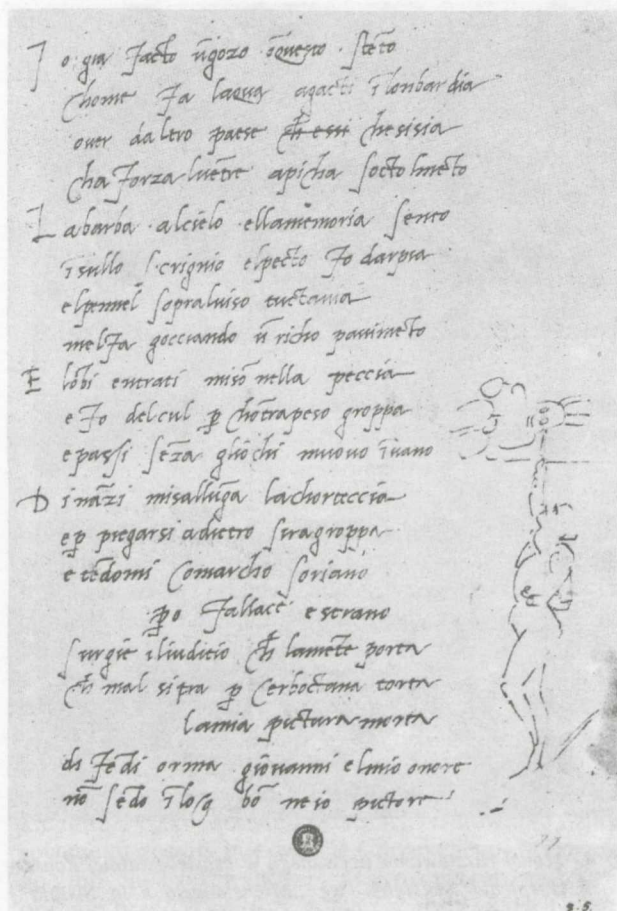 I o gia facto ū gozo ī questo stēto
chome fa laqua agacti ī lonbardia
over daltro paese ch̄ essi chesisia
cha forza luētre apicha socto lmēto
L abarba alcielo ellamemoria sento
ī sullo scrignio elpecto fo darpia
elpennel sopraluiso tuctavia
melfa gocciando ū richo pavimēto
E lōbi entrati misō nella peccia
e fo delcul p̱ chōtrapeso groppa
epassi sēza gliochi muovo ī vano
D ināzi misallūga lachorteccia
ep̱ piegarsi adietro siragroppa
e tēdomi comarcho soriano
p̱o fallace e strano
surgie il iudicio ch̄ lamēte porta
ch̄ mal sitra p̱ cerboctana torta
lamia pictura morta
di fēdi orma giovanni elmio onore
nō sēdo ī loco bō ne io pictore